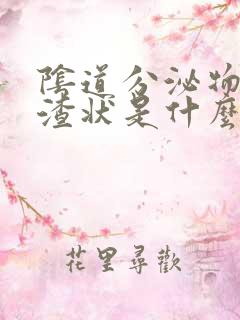 陰道分泌物
渣狀是什麼
花里尋歡